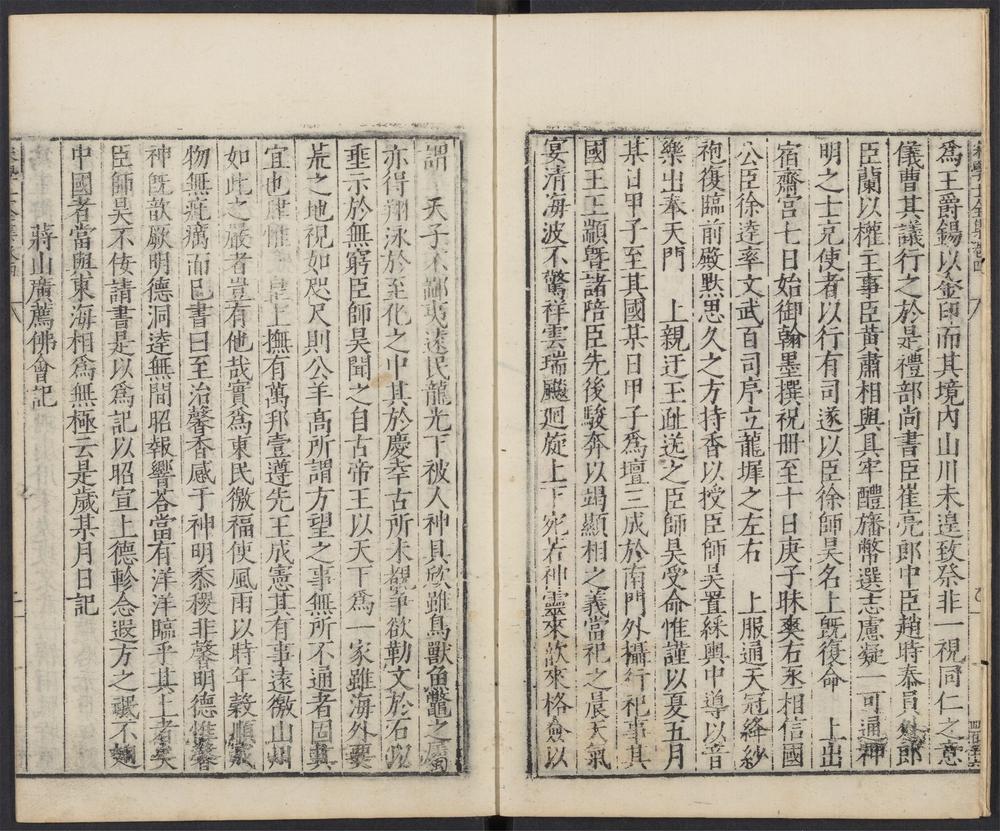 為王爵錫以金印而其境內山川未遑致祭非一視同仁之意
儀曹其議行之於是禮部尚書臣崔亮郎中臣趙時泰員外郎
臣蘭以權工事臣黃肅相與具牢醴旛幣選志慮凝一可通神
明之士克使者以行有司遂以臣徐師昊名上既復命 上出
宿齋宮七日始御翰墨撰祝冊至十日庚子昧爽右丞相信國
公臣徐達率文武百司序立龍墀之左右 上服通天冠絳紗
袍復臨前殿默思久之方持香以授臣師昊置綵輿中導以音
樂出奉天門 上親迂玉趾送之臣師昊受命惟謹以夏五月
某日甲子至其國某日甲子為壇三成於南門外攝行祀事其
國王王顓暨諸陪臣先後駿奔以竭顯相之義當祀之晨天氣
宴清海波不驚祥雲瑞飈迴旋上下宛若神靈來歆來格僉以
謂 天子不鄙夷遠民龍光下被人神具欣雖鳥獸魚鼈之屬
亦得翔泳於至化之中其於慶幸古所未覩爭欲勒文於石以
垂示於無窮臣師昊聞之自古帝王以天下為一家雖海外要
荒之地視如咫尺則公羊高所謂方望之事無所不通者固其
宜也肆惟 皇上撫有萬邦壹遵先王成憲其有事遠徼山川
如此之嚴者豈有他哉實為東民徼福使風雨以時年穀順成
物無疵癘而已書曰至治馨香感于神明黍稷非馨明德惟馨
神既歆厥明德洞達無間昭報響荅當有洋洋臨乎其上者矣
臣師昊不佞請書是以為記以昭宣上德軫念遐方之氓不間
中國者當與東海相為無極云是歲某月日記
蔣山廣薦佛會記